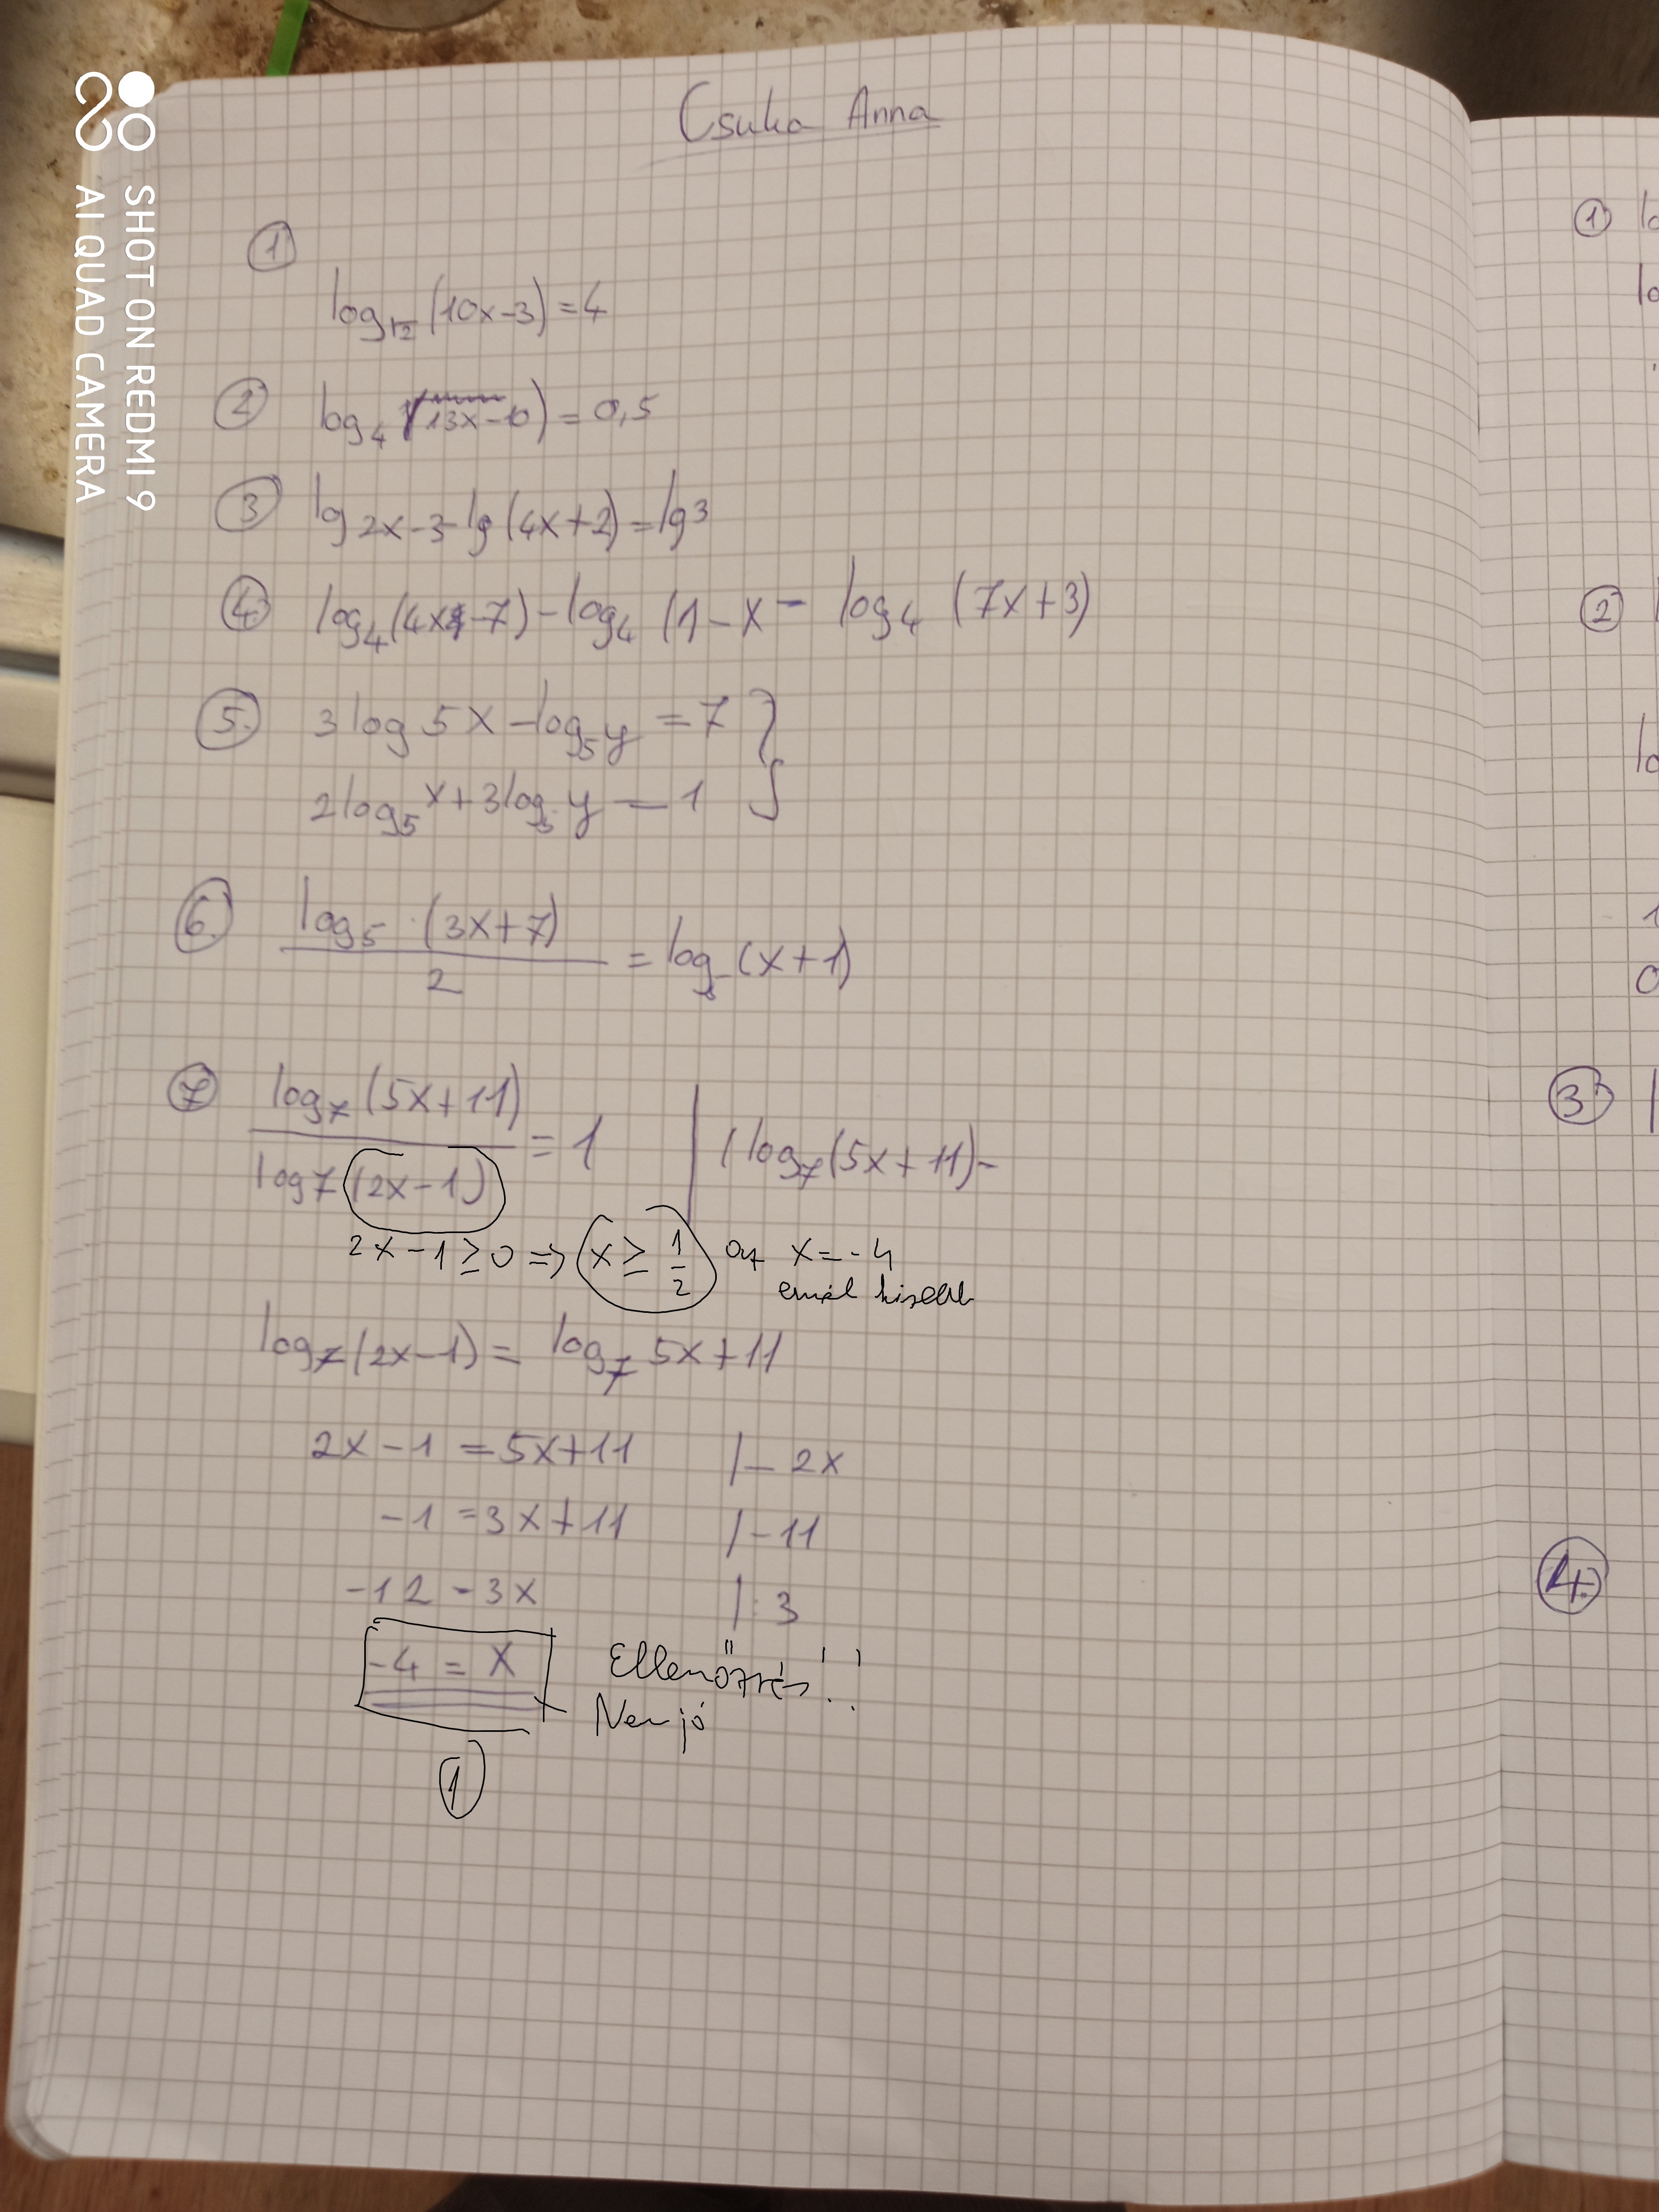 SHOT ON REDMI 9
AI QUAD CAMERA
Csuka Anna
①
log√2 (10x-3) = 4
② log₄ (13x-10) = 0,5
③ lg 2x-3 - lg (4x+2) = lg 3
④. log₄(4x-7) - log₄ (1-x - log₄ (7x+3)
⑤. 3 log 5 x - log₅ y = 7 }
2 log₅ x + 3 log₅ y — 1
⑥. log₅ · (3x+7) / 2 = log₅ (x+1)
⑦ log₇ (5x+11) / log 7 (2x-1) = 1 | log₇ (5x+11) -
2x-1 ≥ 0 ⇒ x ≥ 1/2 x = -4
ennél kisebb
log₇ (2x-1) = log₇ 5x+11
2x-1 = 5x+11 |- 2x
-1 = 3x+11 |-11
-12 - 3x |: 3
-4 = x Ellenőrzés!!
Nem jó
①
① lo
lo
②
lo
1
0
③
④.